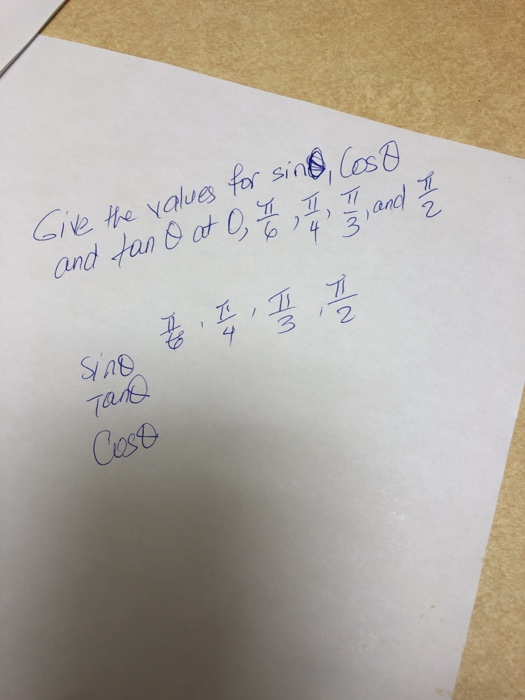 Give the values for sinθ, Cosθ
and tan θ at 0, π/6, π/4, π/3, and π/2
π/6, π/4, π/3, π/2
Sinθ
Tanθ
Cosθ